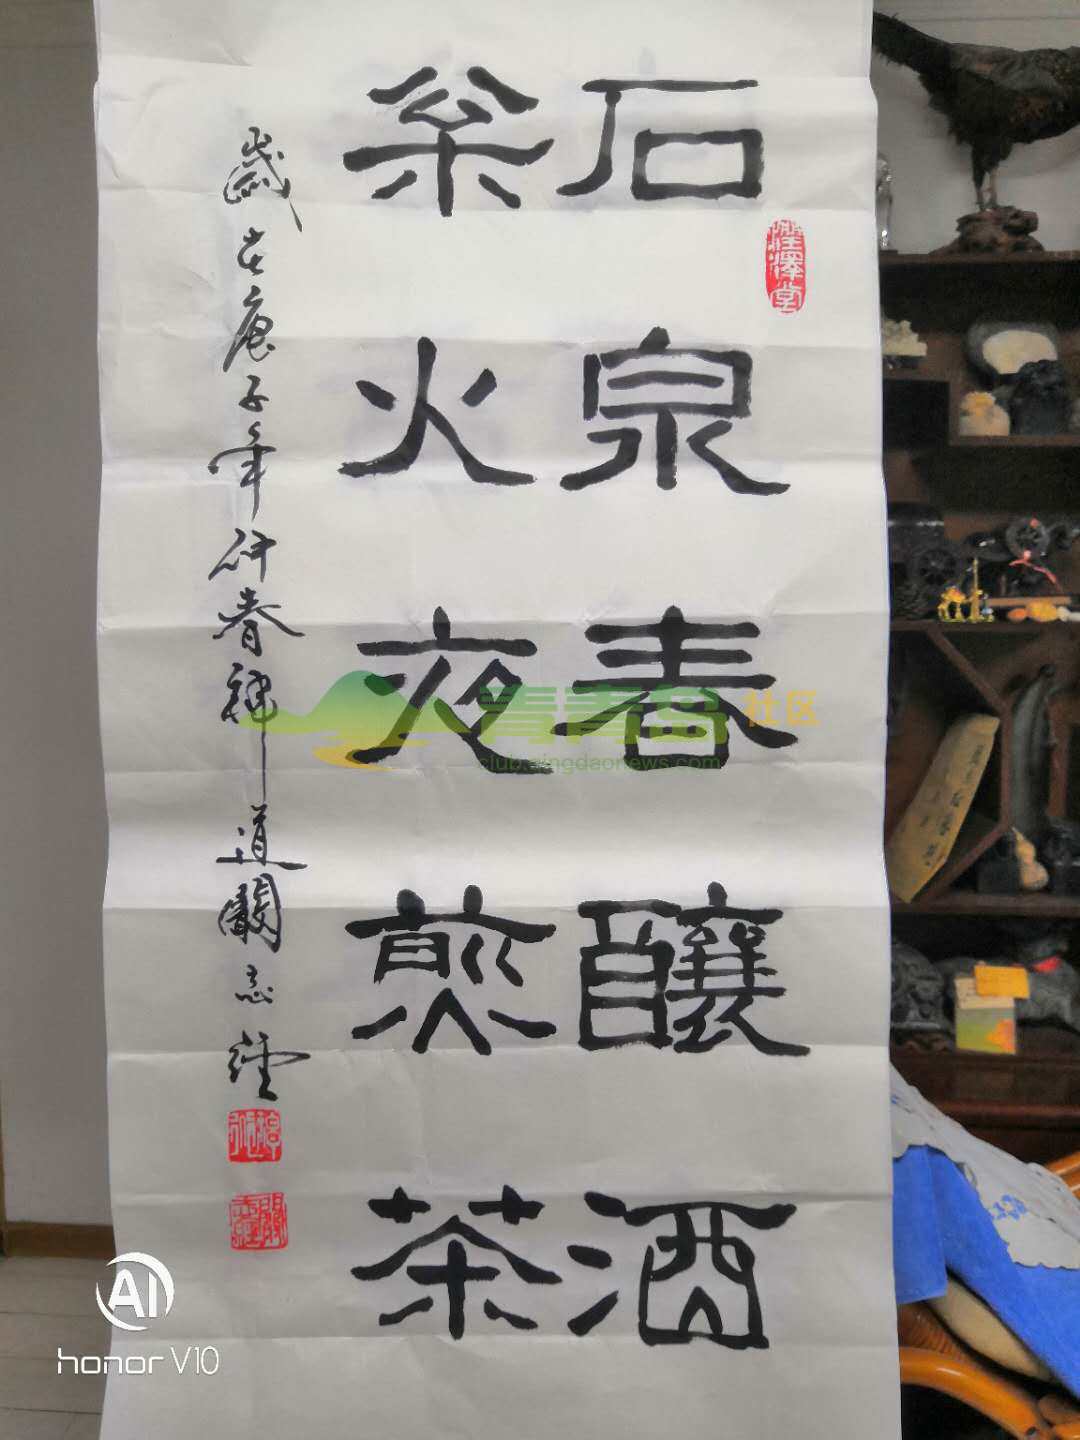 石泉春釀酒
枀火夜煎茶
歲在庚子年仲春禅道關志
青青岛社区
club.qingdaonews.com
AI
honor V10